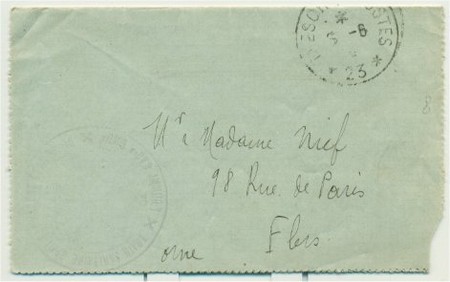 TRESOR POSTES
* 5 -6 *
* 23 *
8
Mr Madame Nief
98 Rue de Paris
Flers
orne